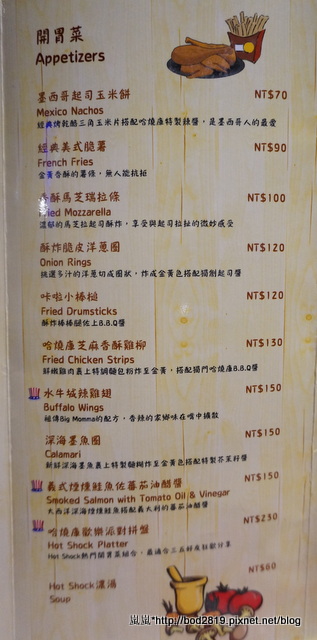 開胃菜
Appetizers
墨西哥起司玉米餅 NT$70
Mexico Nachos
經典烤乾酪三角玉米片搭配哈燒庫特製辣醬，是墨西哥人的最愛
經典美式脆薯 NT$90
French Fries
金黃香酥的薯條，無人能抗拒
香酥馬芝瑞拉條 NT$100
Fried Mozzarella
濃郁的馬芝拉起司酥炸，享受與起司拉扯的微妙感受
酥炸脆皮洋蔥圈 NT$120
Onion Rings
挑選多汁的洋蔥切成圈狀，炸成金黃色搭配獨創起司醬
咔啦小棒槌 NT$120
Fried Drumsticks
酥炸棒棒腿佐上B.B.Q醬
哈燒庫芝麻香酥雞柳 NT$130
Fried Chicken Strips
鮮嫩雞肉裹上特調麵包粉炸至金黃，搭配獨門哈燒庫B.B.Q醬
水牛城辣雞翅 NT$150
Buffalo Wings
祖傳Big Momma的配方，香辣的家鄉味在嘴中擴散
深海墨魚圈 NT$150
Calamari
新鮮深海墨魚裹上特製麵糊炸至金黃色搭配特製芥茉籽醬
義式煙燻鮭魚佐蕃茄油醋醬 NT$150
Smoked Salmon with Tomato Oil & Vinegar
大西洋深海煙燻鮭魚搭配義大利的蕃茄油醋醬
哈燒庫歡樂派對拼盤 NT$230
Hot Shock Platter
Hot Shock熱門開胃菜組合，最適合三五好友狂歡分享
Hot Shock濃湯 NT$60
Soup
嵐嵐*http://bod2819.pixnet.net/blog